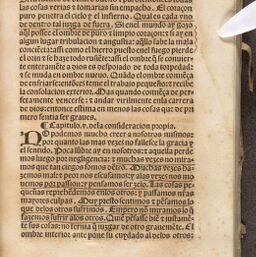 las cosas serias τ tomarias sin empacho. El coraçon
puro penetra el cielo y el infierno. Qual es cada vno
de dentro tal juzga de fuera. Si enel mundo ay gozo
aql̃ possee el ombre de puro τ limpio coraçon: τ si ay en
algun lugar tribulacion τ angustia: aq̃llo sabe la mala
conciẽcia: assi como el hierro puesto enel fuego pierde
el orin τ se haze todo ruziẽte: assi el ombre q̃ se conuier-
te enteramẽte a dios es despojado de toda torpedad
τ se muda en ombre nueuo. Quãdo el ombre comiẽça
de enfriarse: entõces teme el trabajo pequeño: τ recibe
la consolacion exterior. Mas quando comiẽça de per
fetamente vencerse: τ andar virilmente enla carrera
de dios: entonce estima en menos las cosas que de pri
mero sentia ser graues.
Capitulo.v. dela consideracion propia.
NO podemos mucho creer a nosotros mismos:
por quanto las mas vezes nos fallesce la gracia y
el sentido. Poca lũbre ay en nosotros: τ aquella perde
mos luego por negligencia: τ muchas vezes no mira-
mos que tan ciegos somos dẽtro. Muchas vezes ha-
zemos mal τ peor nos escusamos: τ alas vezes nos mo
uemos por passion: τ pensamos ser zelo. Las cosas pe-
queñas reprehendemos enlos otros: τ passamos n̄ras
mayores culpas. Muy presto sentimos τ pesãmos lo
que delos otros sufrimos. Empero nõ miramos lo q̃
fazemos sufrir alos otros. Que pesasse biẽ τ justamẽ-
te sus cosas: no ternia q̃ juzgar de otro grauemẽte. El
ombre interior ante pone su cuydado al delos otros: